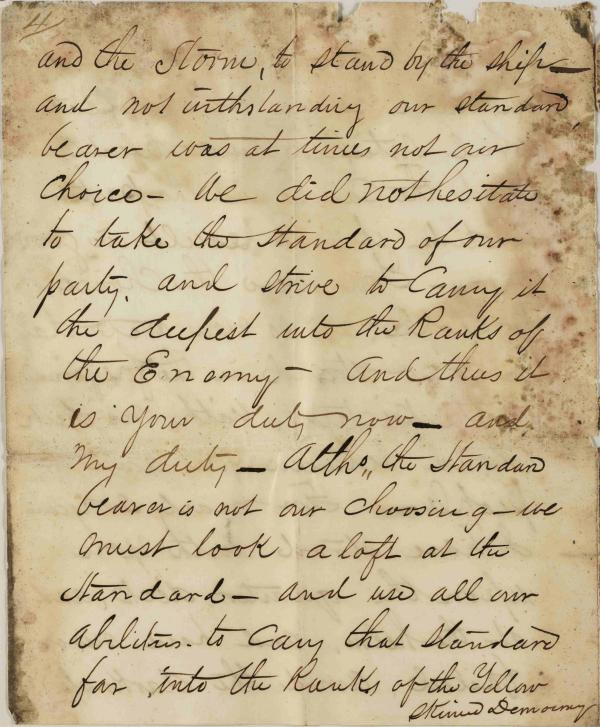 4
and the Storm, to stand by the ship —
and not withstanding our standard
bearer was at times not our
Choice — We did not hesitate
to take the Standard of our
party. and strive to Carry it
the deepest into the Ranks of
the Enemy — And thus it
is your duty now — and
My duty — Altho," the Standard
bearer is not our choosing — we
must look aloft at the
Standard — and use all our
abilities. to Carry that standard
far into the Ranks of the Yellow
Skined Democracy